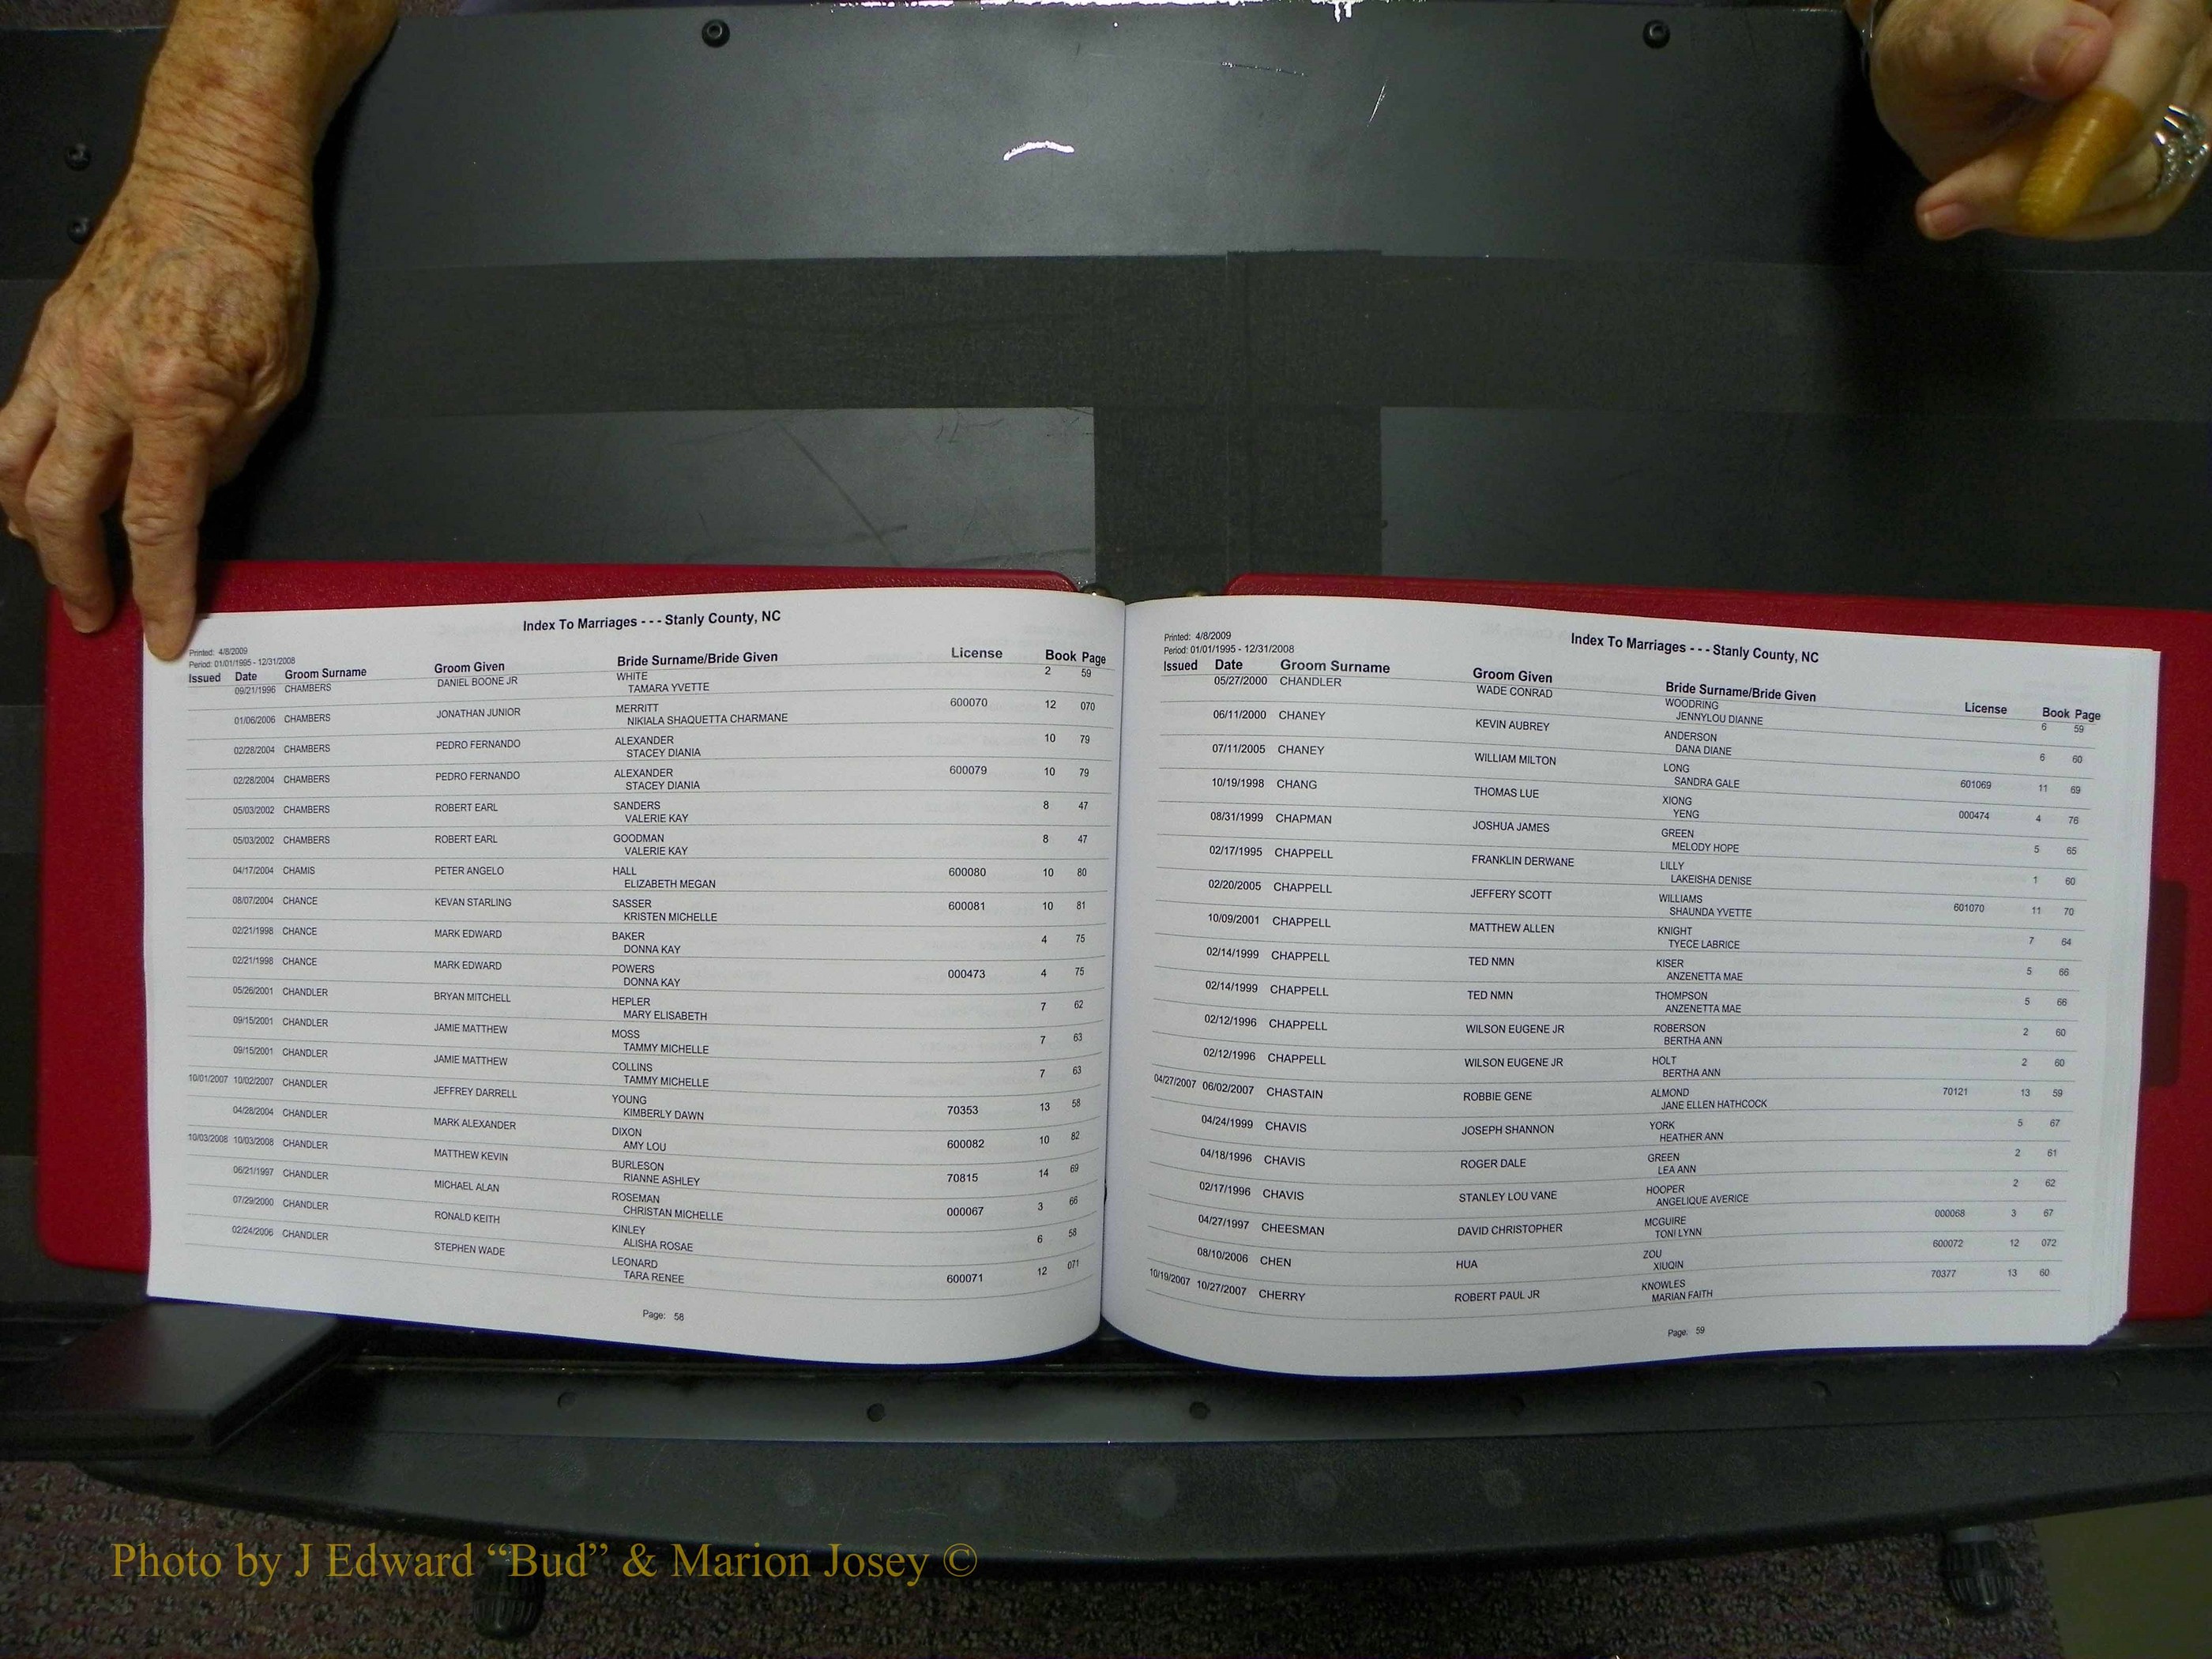 Index To Marriages - - - Stanly County, NC
Printed: 4/8/2009
Period: 01/01/1995 - 12/31/2008
Issued Date Groom Surname Groom Given Bride Surname/Bride Given License Book Page
09/21/1996 CHAMBERS DANIEL BOONE JR WHITE 2 59
TAMARA YVETTE
01/06/2006 CHAMBERS JONATHAN JUNIOR MERRITT 600070 12 070
NIKIALA SHAQUETTA CHARMANE
02/28/2004 CHAMBERS PEDRO FERNANDO ALEXANDER 10 79
STACEY DIANIA
02/28/2004 CHAMBERS PEDRO FERNANDO ALEXANDER 600079 10 79
STACEY DIANIA
05/03/2002 CHAMBERS ROBERT EARL SANDERS 8 47
VALERIE KAY
05/03/2002 CHAMBERS ROBERT EARL GOODMAN 8 47
VALERIE KAY
04/17/2004 CHAMIS PETER ANGELO HALL 600080 10 80
ELIZABETH MEGAN
08/07/2004 CHANCE KEVAN STARLING SASSER 600081 10 81
KRISTEN MICHELLE
02/21/1998 CHANCE MARK EDWARD BAKER 4 75
DONNA KAY
02/21/1998 CHANCE MARK EDWARD POWERS 000473 4 75
DONNA KAY
05/26/2001 CHANDLER BRYAN MITCHELL HEPLER 7 62
MARY ELISABETH
09/15/2001 CHANDLER JAMIE MATTHEW MOSS 7 63
TAMMY MICHELLE
09/15/2001 CHANDLER JAMIE MATTHEW COLLINS 7 63
TAMMY MICHELLE
10/01/2007 10/02/2007 CHANDLER JEFFREY DARRELL YOUNG 70353 13 58
KIMBERLY DAWN
04/28/2004 CHANDLER MARK ALEXANDER DIXON 600082 10 82
AMY LOU
10/03/2008 10/03/2008 CHANDLER MATTHEW KEVIN BURLESON 70815 14 69
RIANNE ASHLEY
06/21/1997 CHANDLER MICHAEL ALAN ROSEMAN 000067 3 66
CHRISTAN MICHELLE
07/29/2000 CHANDLER RONALD KEITH KINLEY 6 58
ALISHA ROSAE
02/24/2006 CHANDLER STEPHEN WADE LEONARD 600071 12 071
TARA RENEE
Page: 58
Index To Marriages - - - Stanly County, NC
Printed: 4/8/2009
Period: 01/01/1995 - 12/31/2008
Issued Date Groom Surname Groom Given Bride Surname/Bride Given License Book Page
05/27/2000 CHANDLER WADE CONRAD WOODRING 6 59
JENNYLOU DIANNE
06/11/2000 CHANEY KEVIN AUBREY ANDERSON 6 60
DANA DIANE
07/11/2005 CHANEY WILLIAM MILTON LONG 601069 11 69
SANDRA GALE
10/19/1998 CHANG THOMAS LUE XIONG 000474 4 76
YENG
08/31/1999 CHAPMAN JOSHUA JAMES GREEN 5 65
MELODY HOPE
02/17/1995 CHAPPELL FRANKLIN DERWANE LILLY 1 60
LAKEISHA DENISE
02/20/2005 CHAPPELL JEFFERY SCOTT WILLIAMS 601070 11 70
SHAUNDA YVETTE
10/09/2001 CHAPPELL MATTHEW ALLEN KNIGHT 7 64
TYECE LABRICE
02/14/1999 CHAPPELL TED NMN KISER 5 66
ANZENETTA MAE
02/14/1999 CHAPPELL TED NMN THOMPSON 5 66
ANZENETTA MAE
02/12/1996 CHAPPELL WILSON EUGENE JR ROBERSON 2 60
BERTHA ANN
02/12/1996 CHAPPELL WILSON EUGENE JR HOLT 2 60
BERTHA ANN
04/27/2007 06/02/2007 CHASTAIN ROBBIE GENE ALMOND 70121 13 59
JANE ELLEN HATHCOCK
04/24/1999 CHAVIS JOSEPH SHANNON YORK 5 67
HEATHER ANN
04/18/1996 CHAVIS ROGER DALE GREEN 2 61
LEA ANN
02/17/1996 CHAVIS STANLEY LOU VANE HOOPER 2 62
ANGELIQUE AVERICE
04/27/1997 CHEESMAN DAVID CHRISTOPHER MCGUIRE 000068 3 67
TONI LYNN
08/10/2006 CHEN HUA ZOU 600072 12 072
XIUQIN
10/19/2007 10/27/2007 CHERRY ROBERT PAUL JR KNOWLES 70377 13 60
MARIAN FAITH
Page: 59
Photo by J Edward “Bud” & Marion Josey ©